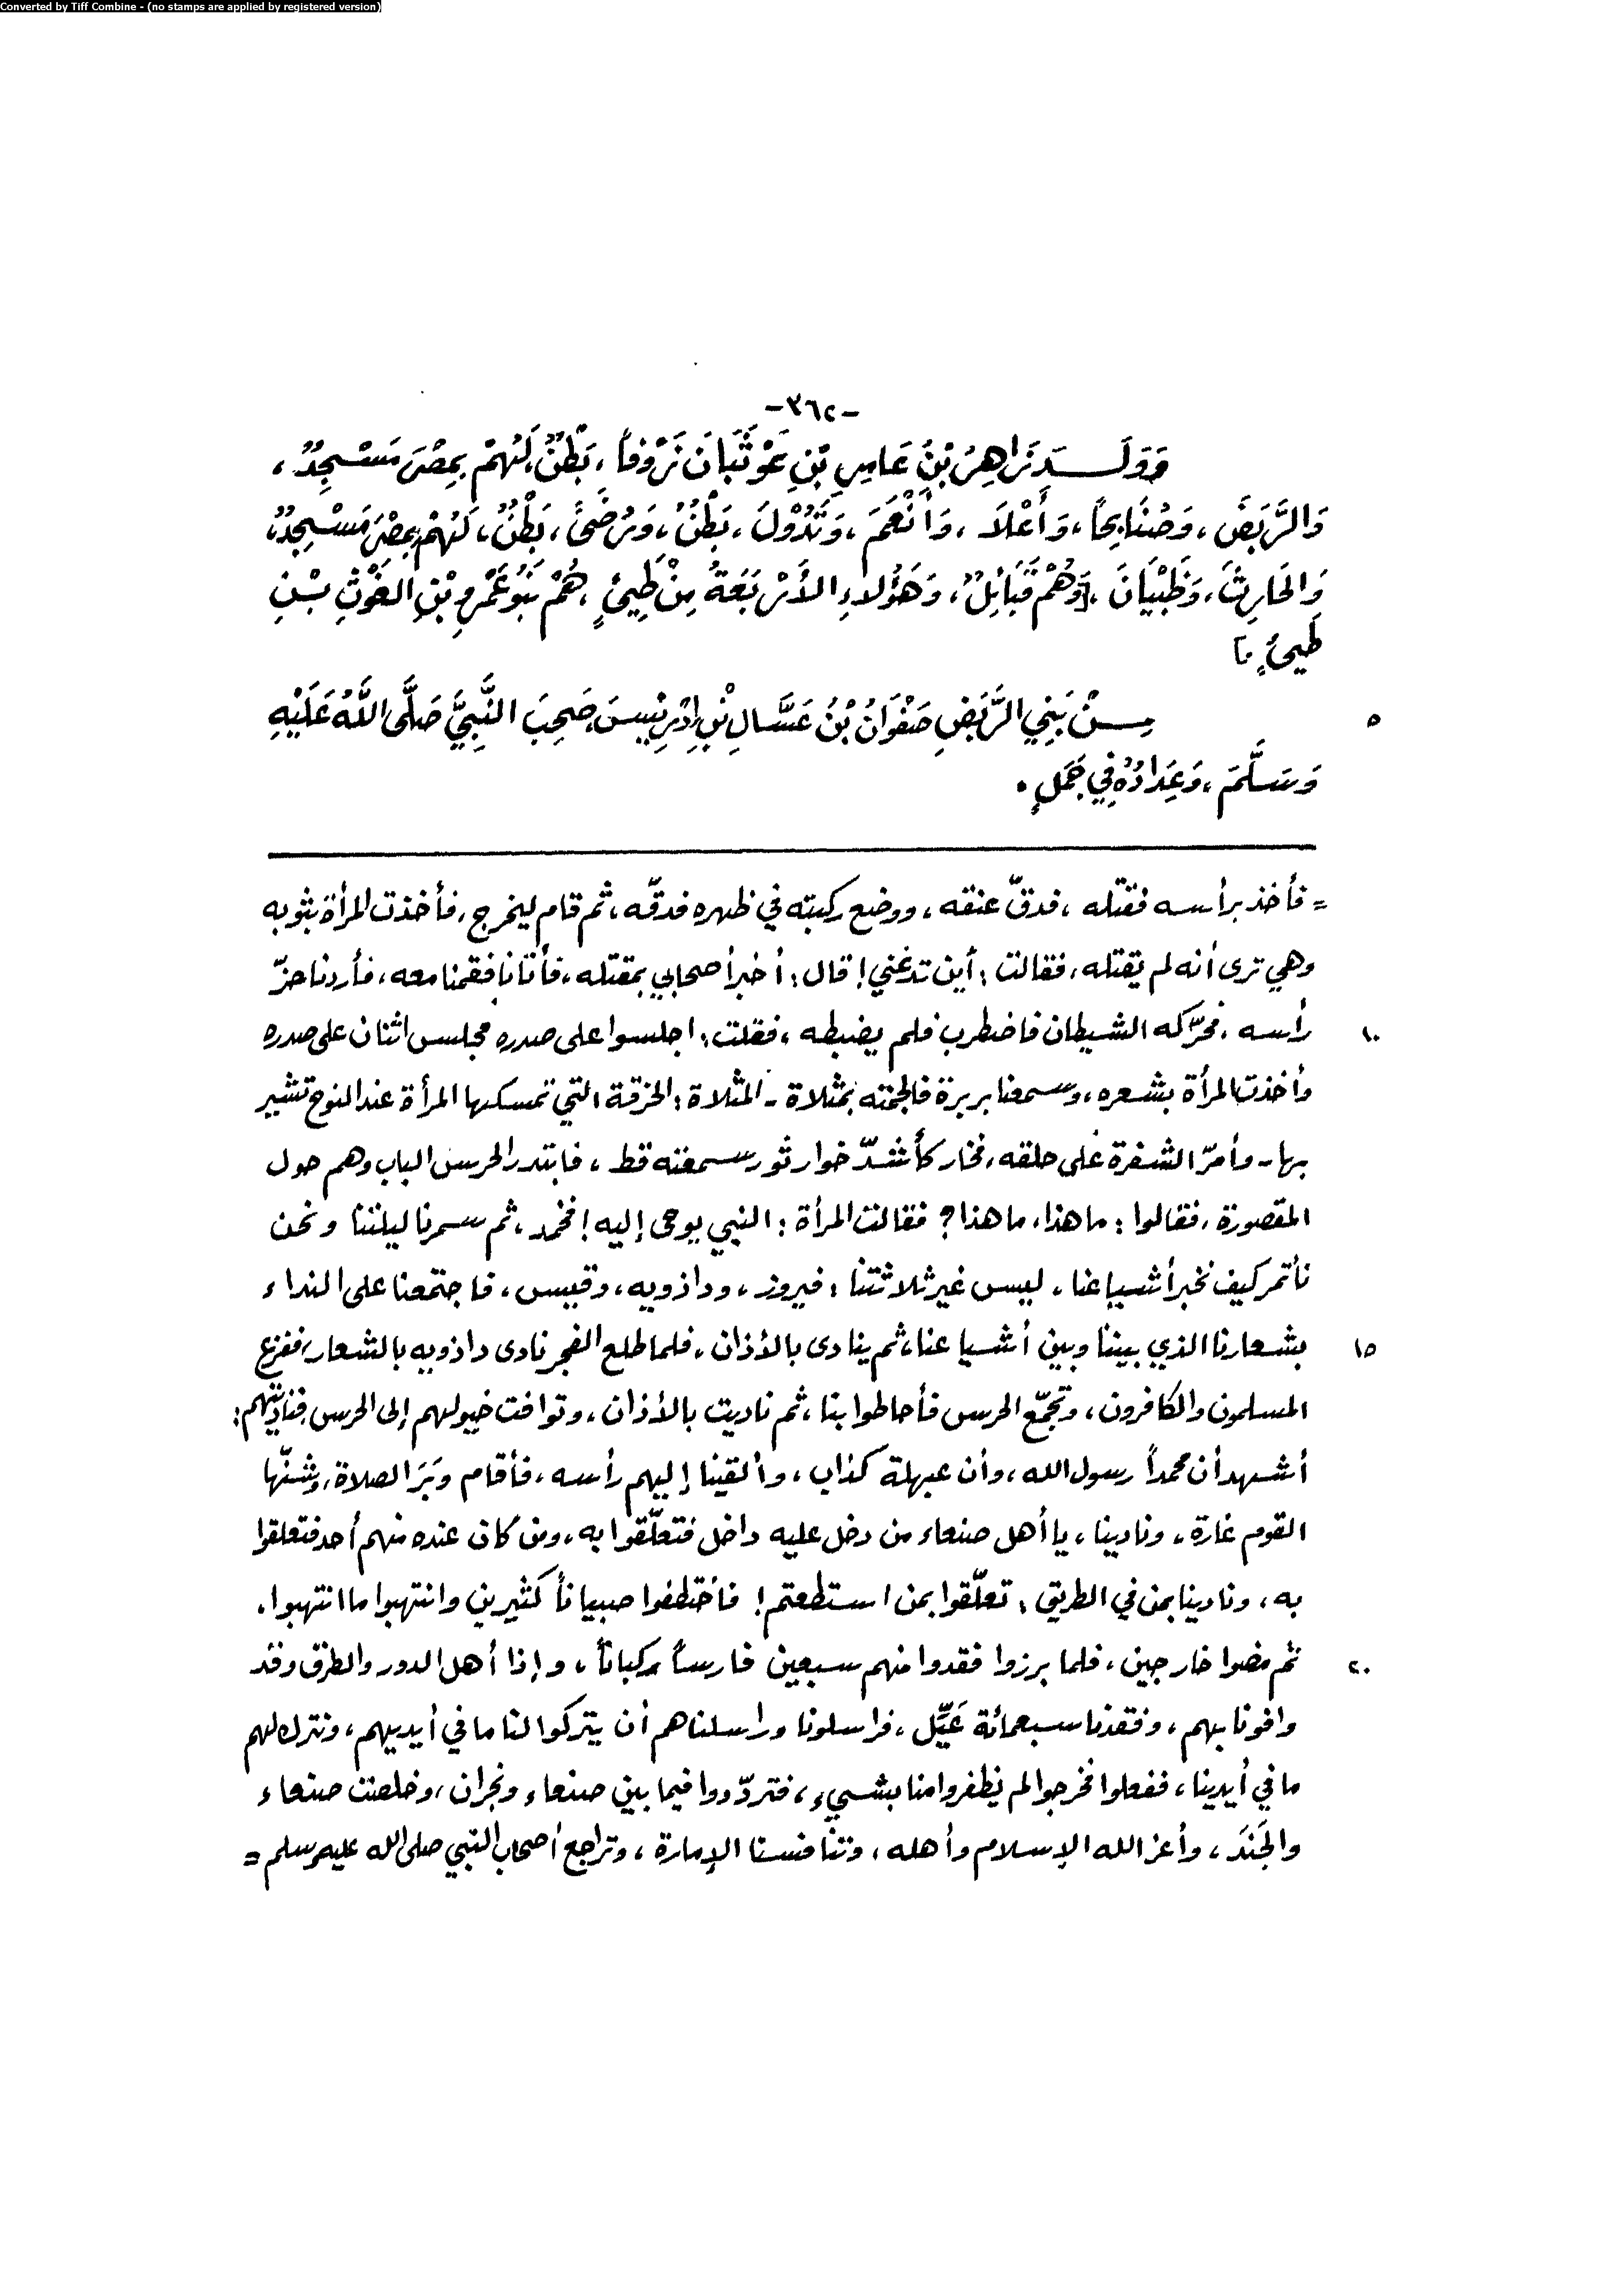 Converted by Tiff Combine - (no stamps are applied by registered version)
-٣٦٢-
وَوَلَـــدَ زَاهِرُ بْنُ عَامِرِ بْنِ عَوْثَبَانَ زَوْفاً، بَطْنٌ، لَهُمْ بِمِصْرَ مَسْجِدٌ،
وَالرَّبَضَ، وَصُنَابِحاً، وَأَعْلَا، وَأَنْعَمَ، وَتَدُوْلَ، بَطْنٌ، وَرُضَىً، بَطْنٌ، لَهُمْ بِمِصْرَ مَسْجِدٌ،
وَالحَارِثَ، وَظَبْيَانَ، [وَهُمْ قَبَائِلُ، وَهَؤُلاءِ الأَرْبَعَةُ مِنْ طَيِئٍ، هُمْ بَنُو عَمْرِو بْنِ الغَوْثِ بْنِ
طَيئٍ.]
مِـــنْ بَنِي الرَّبَضِ صَفْوَانُ بْنُ عَسَّالِ بْنِ إِدْرِيْسَ، صَحِبَ النَّبِيَّ صَلَّى اللَّهُ عَلَيْهِ
٥
وَسَلَّمَ، وَعِدَادُهُ فِي جَمَلٍ.
= فأخذ برأسه فقتله، فدقّ عنقه، ووضع ركبته في ظهره فدقّه، ثم قام ليخرج، فأخذت المرأة بثوبه
وهي ترى أنه لم يقتله، فقالت: أين تدعني! قال: أخبر أصحابي بمقتله، فأتانا فقمنا معه، فأردنا حزّ
رأسه، فحرّكه الشيطان فاضطرب فلم يضبطه، فقلت: اجلسوا على صدره فجلس اثنان على صدره
١٠
وأخذت المرأة بشعره، وسمعنا بربرة فألجمته بمثلاة - المثلاة: الخرقة التي تمسكها المرأة عند النوح تشير
بها - وأمرّ الشفرة على حلقه، فخار كأشدّ خوار ثور سمعته قط، فابتدر الحرس الباب وهم حول
المقصورة، فقالوا: ما هذا، ما هذا؟ فقالت المرأة: النبي يوحى إليه! فخمد، ثم سمرنا ليلتنا ونحن
نأتمر كيف نخبر أشياعنا، ليس غير ثلاثتنا: فيروز، وداذويه، وقيس، فاجتمعنا على النداء
بشعارنا الذي بيننا وبين أشياعنا، ثم ينادى بالأذان، فلما طلع الفجر نادى داذويه بالشعار، ففزع
١٥
المسلمون والكافرون، وتجمّع الحرس فأحاطوا بنا، ثم ناديت بالأذان، وتوافت خيولهم إلى الحرس، فناديتهم:
أشهد أن محمداً رسول الله، وأن عبهلة كذاب، وألقينا إليهم رأسه، فأقام وَبَرَ الصلاة، وشنّها
القوم غارة، ونادينا، يا أهل صنعاء من دخل عليه داخل فتعلّقوا به، ومن كان عنده منهم أحد فتعلقوا
به، ونادينا بمن في الطريق: تعلّقوا بمن استطعتم! فاختطفوا صبياناً كثيرين وانتهبوا ما انتهبوا،
ثم مضوا خارجين، فلما برزوا فقدوا منهم سبعين فارساً ركباناً، وإذا أهل الدور والطرق وقد
٢٠
وافونا بهم، وفقدنا سبعمائة عَيِّل، فراسلونا وراسلناهم أن يتركوا لنا ما في أيديهم، ونترك لهم
ما في أيدينا، ففعلوا فخرجوا لم يظفروا منا بشيء، فتردّدوا فيما بين صنعاء ونجران، وخلصت صنعاء
والجَنَدَ، وأعز الله الإسلام وأهله، وتنافسنا الإمارة، وتراجع أصحاب النبي صلى الله عليه وسلم =